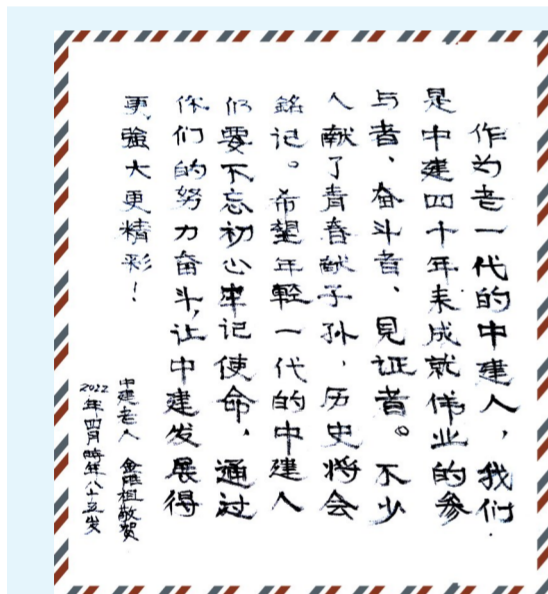 作为老一代的中建人，我们
是中建四十年来成就伟业的参
与者、奋斗者、見证者。不少
人献了青春献子孙，历史将会
銘记。希望年輕一代的中建人
们要不忘初心牢记使命，通过
你们的努力奋斗，让中建发展得
更強大更精彩！
中建老人 金 祖敬贺
2022年四月時年八十五岁